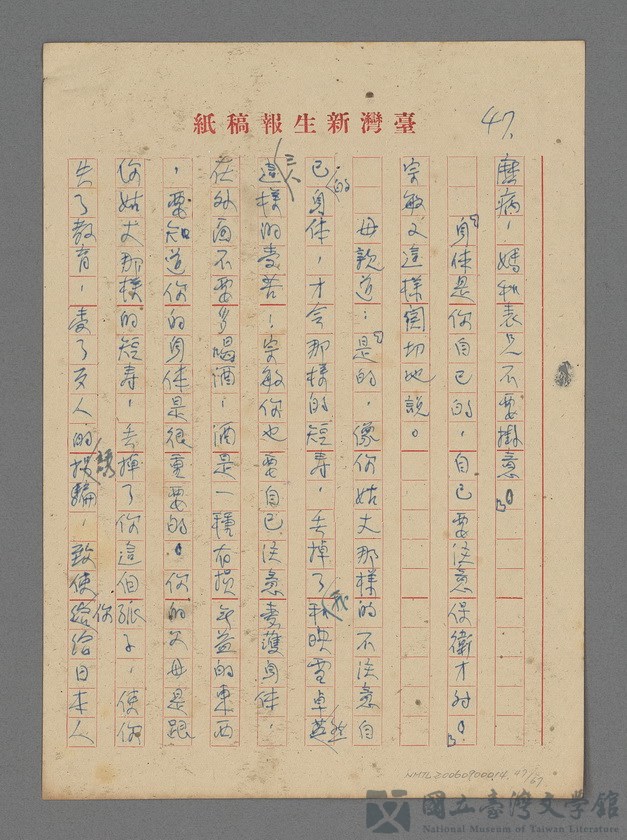 臺灣新生報稿紙
47.
甚病，媽和表兄不要掛意。」
「身体是你自已的，自已要注意保衛才对。」
宗敏又這樣関切地說。
母親道：「是的，像你姑丈那樣的不注意自
已的身体，才会那樣的短寿，丢掉了我和映雪卓然
三人這樣的受苦！宗敏你也要自已注意愛護身体，
在外面不要多喝酒，酒是一種有損無益的東西
，要知道你的身体是很重要的。你的父母是跟
你姑丈那樣的短寿，丢掉了你這個孤子，使你
失了教育，受了歹人的誘騙，致使你給日本人
NMTL20060900014 47/67
國立臺灣文學館
National Museum of Taiwan Literature